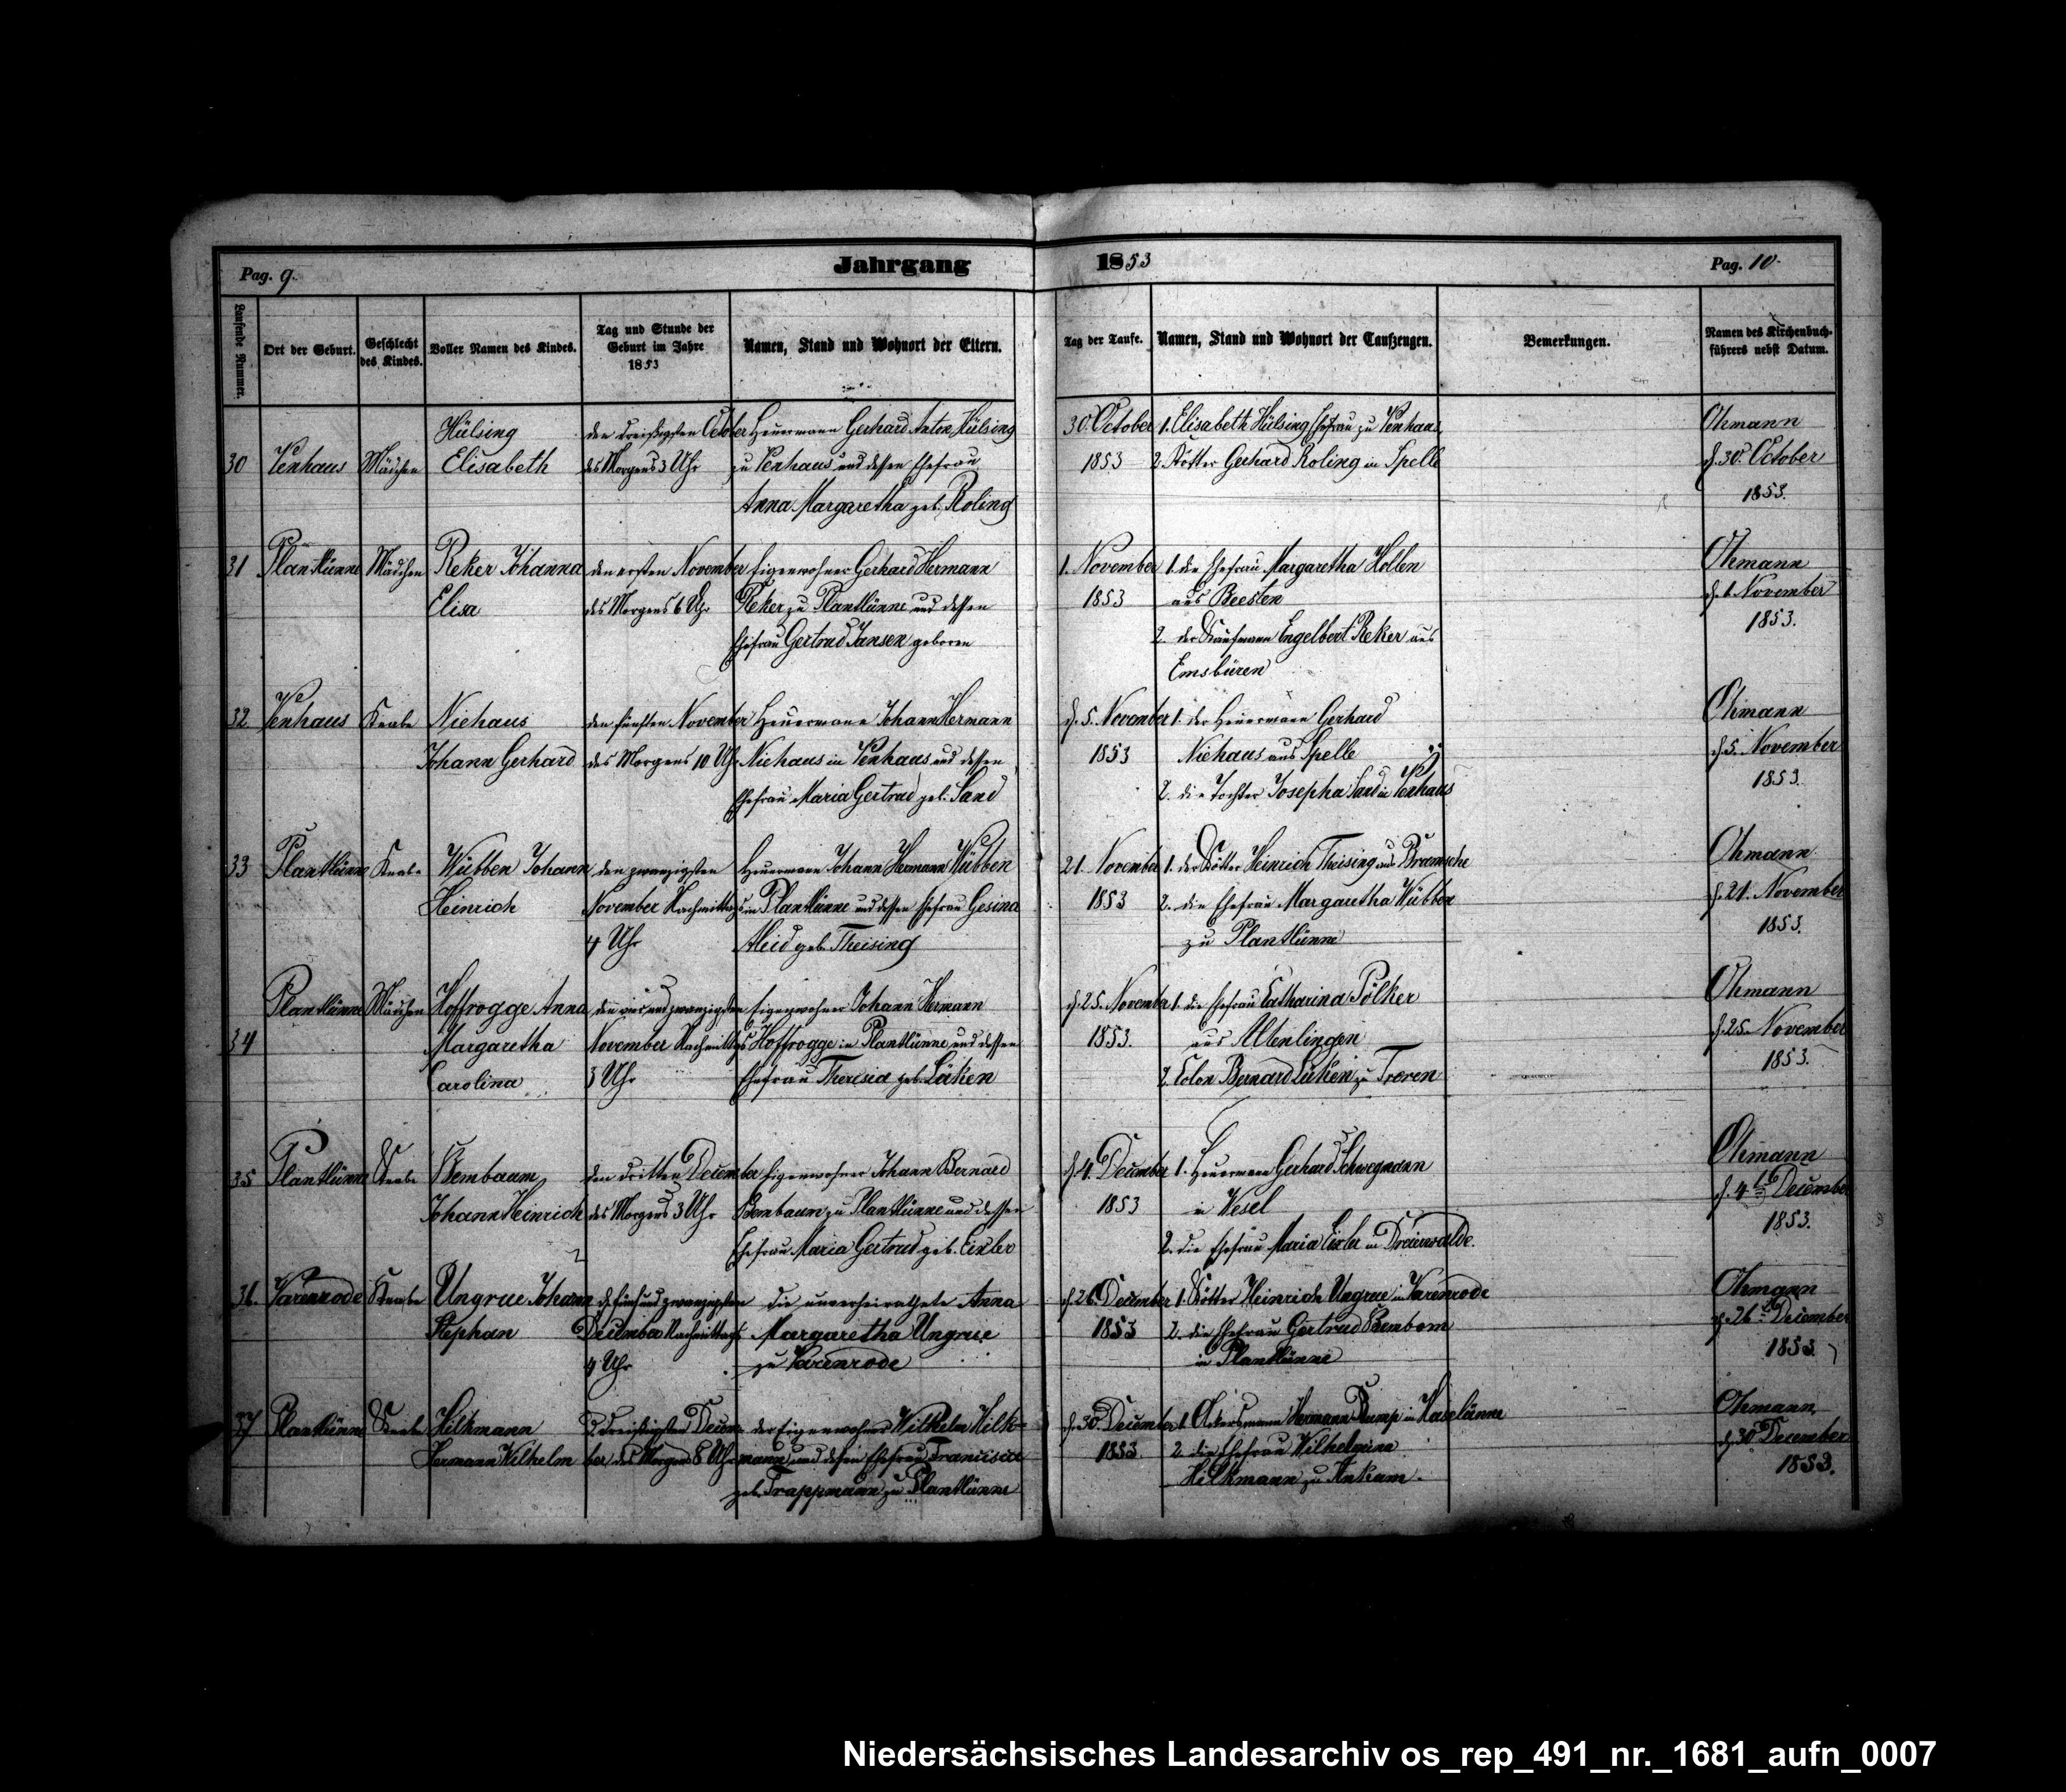 Pag. 9.
Jahrgang
1853
Pag. 10.
Laufende Nummer.
Ort der Geburt.
Geschlecht des Kindes.
Voller Namen des Kindes.
Tag und Stunde der Geburt im Jahre 1853
Namen, Stand und Wohnort der Eltern.
Tag der Taufe.
Namen, Stand und Wohnort der Taufzeugen.
Bemerkungen.
Namen des Kirchenbuch-
führers nebst Datum.
30 Venhaus Mädchen
Hülsing
Elisabeth
den dreißigsten October
des Morgens 3 Uhr
Heuermann Gerhard Anton Hülsing
zu Venhaus und dessen Ehefrau
Anna Margaretha geb. Roling
30. October
1853
1. Elisabeth Hülsing Ehefrau zu Venhaus
2. Kötter Gerhard Roling in Spelle
Ohmann
d. 30. October
1853.
31 Plantlünne Mädchen
Reker Johanna
Elisa
den ersten November
des Morgens 6 Uhr
Eigenwohner Gerhard Hermann
Reker zu Plantlünne und dessen
Ehefrau Gertrud Jansen geboren
1. November
1853
1. die Ehefrau Margaretha Hollen
aus Beesten
2. der Kaufmann Engelbert Reker aus
Emsbüren
Ohmann
d. 1. November
1853.
32 Venhaus Knabe
Niehaus
Johann Gerhard
den fünften November
des Morgens 10 Uhr
Heuermann Johann Hermann
Niehaus in Venhaus und dessen
Ehefrau Maria Gertrud geb. Sand
d. 5. November
1853
1. der Heuermann Gerhard
Niehaus aus Spelle
2. die Tochter Josepha Sand in Venhaus
Ohmann
d. 5. November
1853.
33 Plantlünne Knabe
Wübben Johann
Heinrich
den zwanzigsten
November Nachmittags
4 Uhr
Heuermann Johann Hermann Wübben
in Plantlünne und dessen Ehefrau Gesina
Aleid geb. Theising
21. November
1853
1. der Kötter Heinrich Theising aus Bramsche
2. die Ehefrau Margaretha Wübben
zu Plantlünne
Ohmann
d. 21. November
1853.
34 Plantlünne Mädchen
Hoffrogge Anna
Margaretha
Carolina
den vier und zwanzigsten
November Nachmittags
3 Uhr
Eigenwohner Johann Hermann
Hoffrogge in Plantlünne und dessen
Ehefrau Theresia geb. Lüken
d. 25. November
1853.
1. die Ehefrau Catharina Pölker
aus Altenlingen
2. Colon Bernard Lüken zu Freren
Ohmann
d. 25. November
1853.
35 Plantlünne Knabe
Bembaum
Johann Heinrich
den dritten December
des Morgens 3 Uhr
Eigenwohner Johann Bernard
Bembaum zu Plantlünne und dessen
Ehefrau Maria Gertrud geb. Eixler
d. 4. December
1853
1. Heuermann Gerhard Schwegmann
in Wesel
2. die Ehefrau Maria Eixler in Dreierwalde.
Ohmann
d. 4 December
1853.
36. Varenrode Knabe
Ungrue Johann
Stephan
d. fünf und zwanzigsten
December Nachmittags
4 Uhr
die unverheirathete Anna
Margaretha Ungrue
zu Varenrode
d. 26. December
1853
1. Kötter Heinrich Ungrue in Varenrode
2. die Ehefrau Gertrud Bembom
in Plantlünne
Ohmann
d. 26 December
1853.
37 Plantlünne Knabe
Hilkmann
Hermann Wilhelm
d. dreißigsten Decem-
ber des Morgens 8 Uhr
der Eigenwohner Wilhelm Hilk-
mann und dessen Ehefrau Francisca
geb. Trappmann zu Plantlünne
d. 30. December
1853.
1. Ackersmann Hermann Rump in Haselünne
2. die Ehefrau Wilhelmina
Hilkmann zu Ankum.
Ohmann
d. 30 December
1853.
Niedersächsisches Landesarchiv os_rep_491_nr._1681_aufn_0007